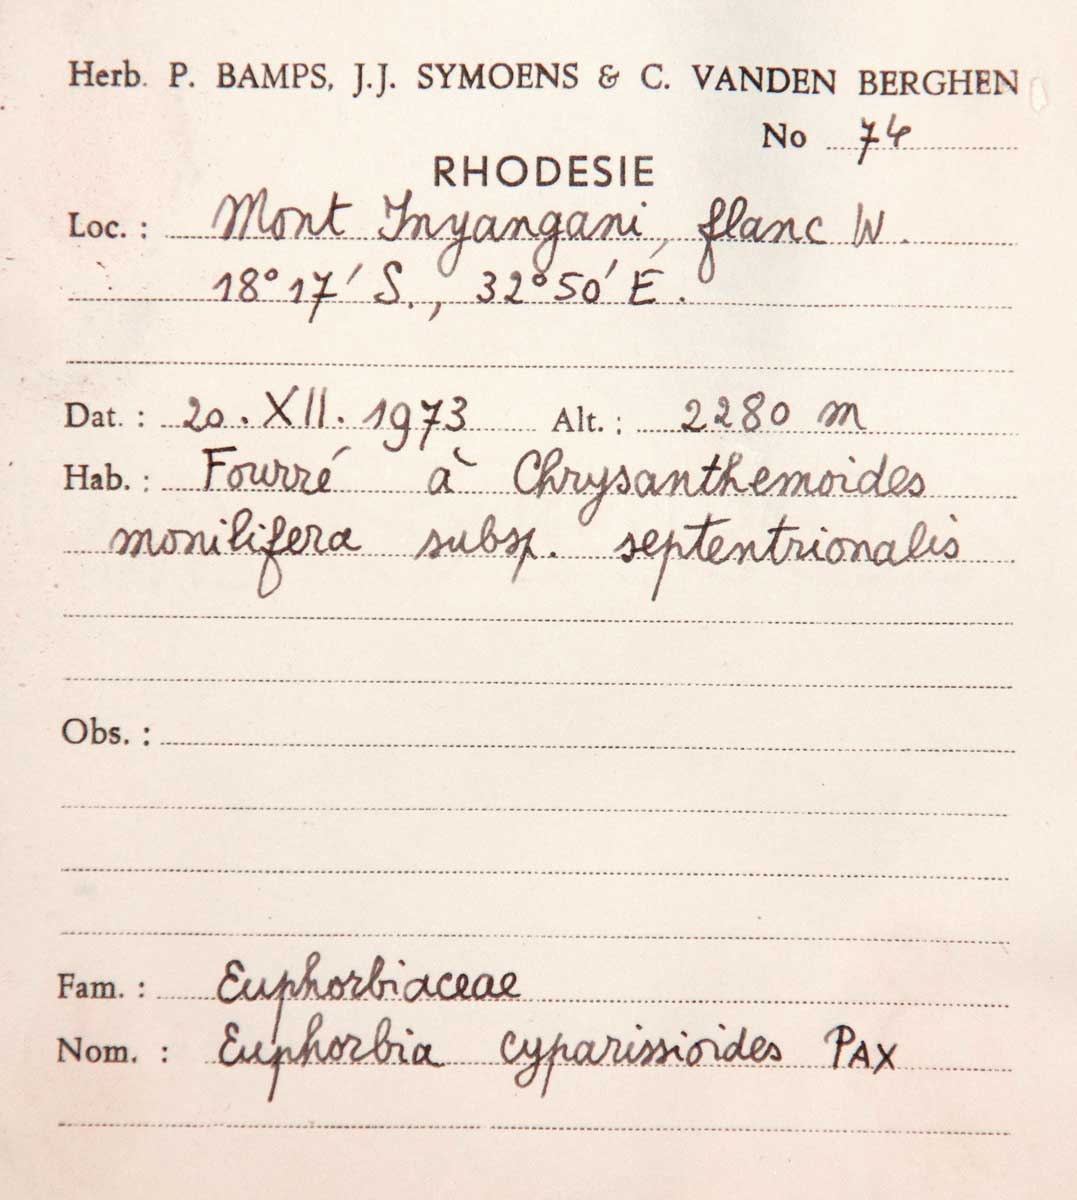 Herb. P. BAMPS, J.J. SYMOENS & C. VANDEN BERGHEN
No 74
RHODESIE
Loc. : Mont Inyangani, flanc W.
18°17' S., 32°50' É.
Dat. : 20.XII.1973 Alt. : 2280 m
Hab. : Fourré à Chrysanthemoides
monilifera subsp. septentrionalis
Obs. :
Fam. : Euphorbiaceae
Nom. : Euphorbia cyparissioides PAX